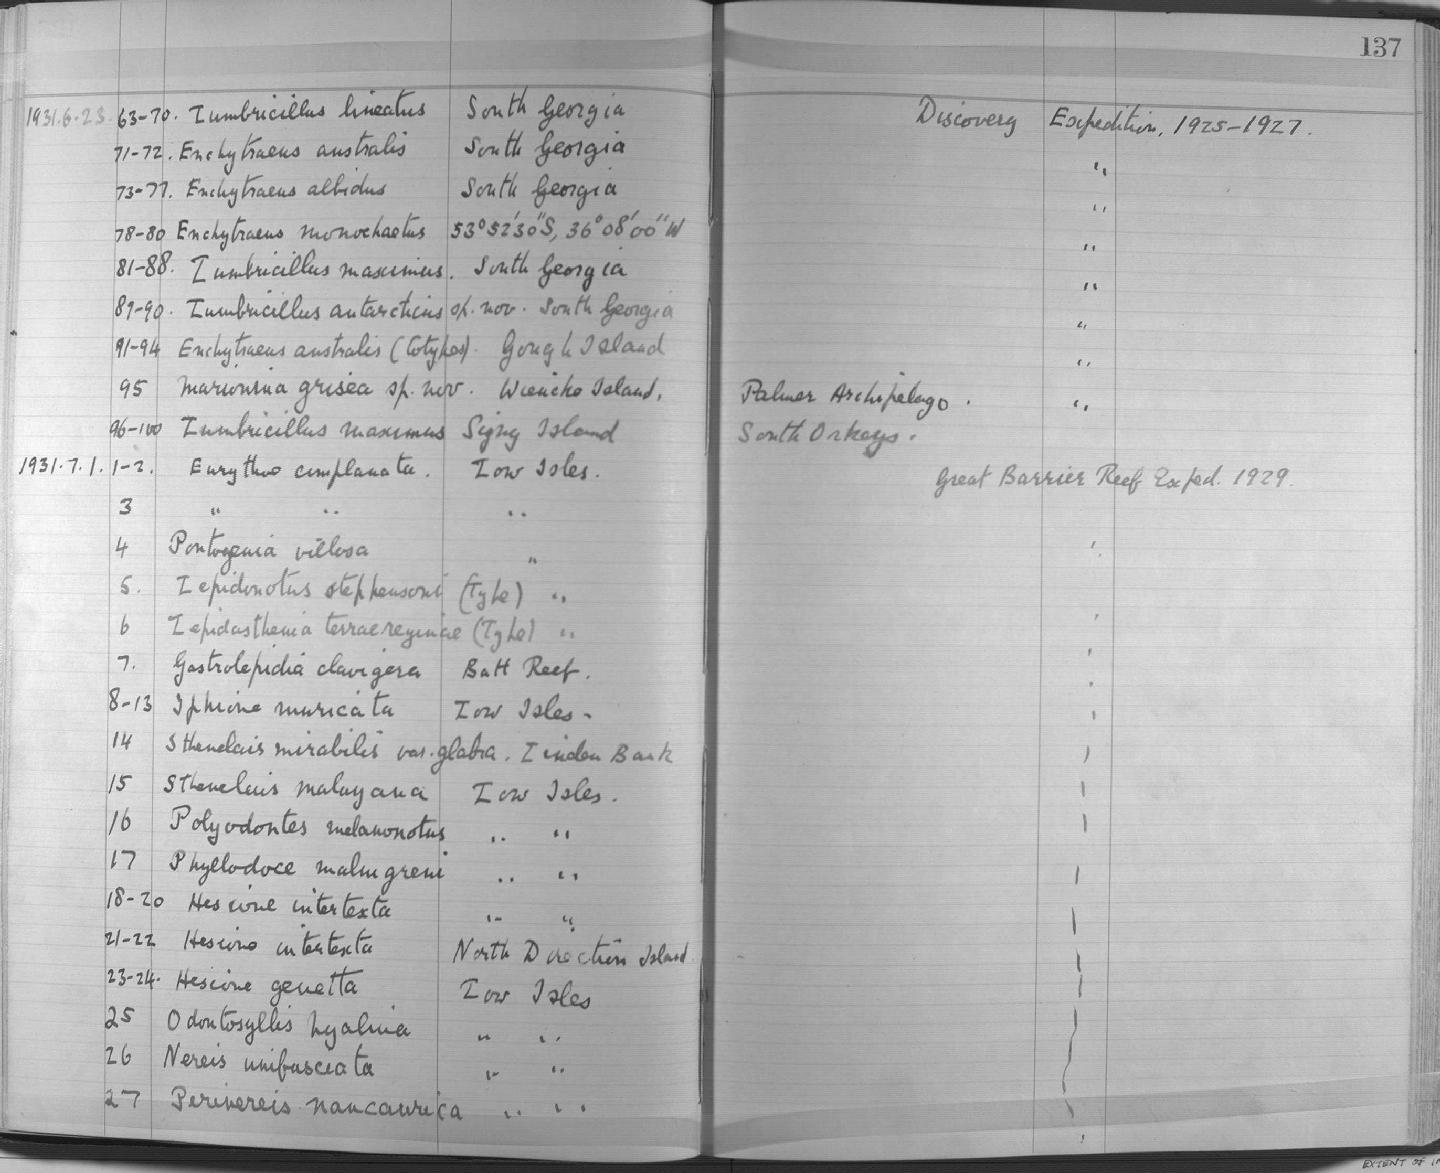 137
1931.6.23. 63-70. Lumbricillus lineatus South Georgia Discovery Expedition, 1925-1927.
71-72. Enchytraeus australis South Georgia "
73-77. Enchytraeus albidus South Georgia "
78-80 Enchytraeus monochaetus 53°52'30"S, 36°08'00"W "
81-88. Lumbricillus maximus. South Georgia "
89-90. Lumbricillus antarcticus sp. nov. South Georgia "
91-94 Enchytraeus australis (Cotypes). Gough Island "
95 Marionina grisea sp. nov. Wiencke Island, Palmer Archipelago. "
96-100 Lumbricillus maximus Signy Island South Orkeys.
1931.7.1. 1-2. Eurythoe complanata. Low Isles. Great Barrier Reef Exped. 1929.
3 " " "
4 Pontogenia villosa " "
5. Lepidonotus stephensoni (Type) "
6 Lepidasthenia terraereginae (Type) " '
7. Gastrolepidia clavigera Batt Reef. '
8-13 Iphione muricata Low Isles - '
14 Sthenelais mirabilis var. glabra. Linden Bank
15 Sthenelais malayana Low Isles.
16 Polyodontes melanonotus " "
17 Phyllodoce malmgreni " "
18-20 Hesione intertexta " "
21-22 Hesione intertexta North Direction Island
23-24. Hesione genetta Low Isles
25 Odontosyllis hyalina " "
26 Nereis unifasciata " "
27 Perinereis nancaurica " "
EXTENT OF